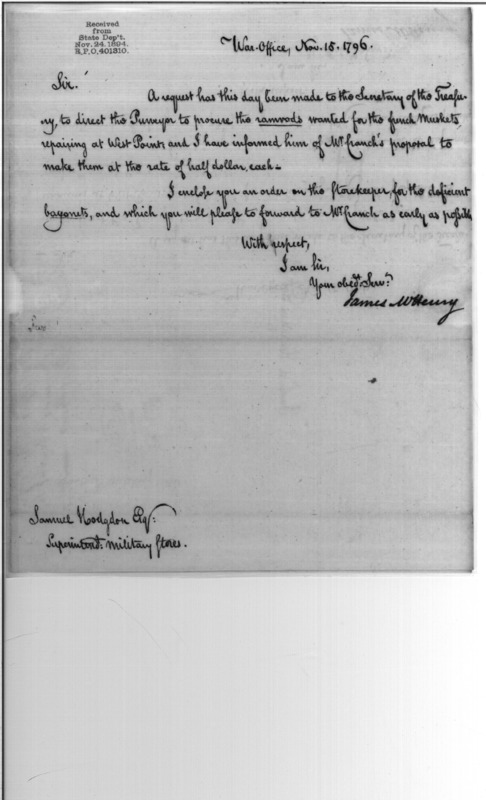 Received
from
State Dep't.
Nov. 24. 1894.
R.P.O, 401310.
War-Office, Nov. 15. 1796.
Sir.
A request has this day been made to the Secretary of the Treasu-
ry, to direct the Purveyor to procure the ramrods wanted for the french Muskets
repairing at West Point; and I have informed him of Mr. Cranch's proposal to
make them at the rate of half dollar, each.-
I enclose you an order on the storekeeper, for the deficient
bayonets, and which you will please to forward to Mr. Cranch as early as possible
With respect,
I am Sir,
Your obedt. Servt.
James McHenry
Samuel Hodgdon Esqr:
Superintendt. military stores.